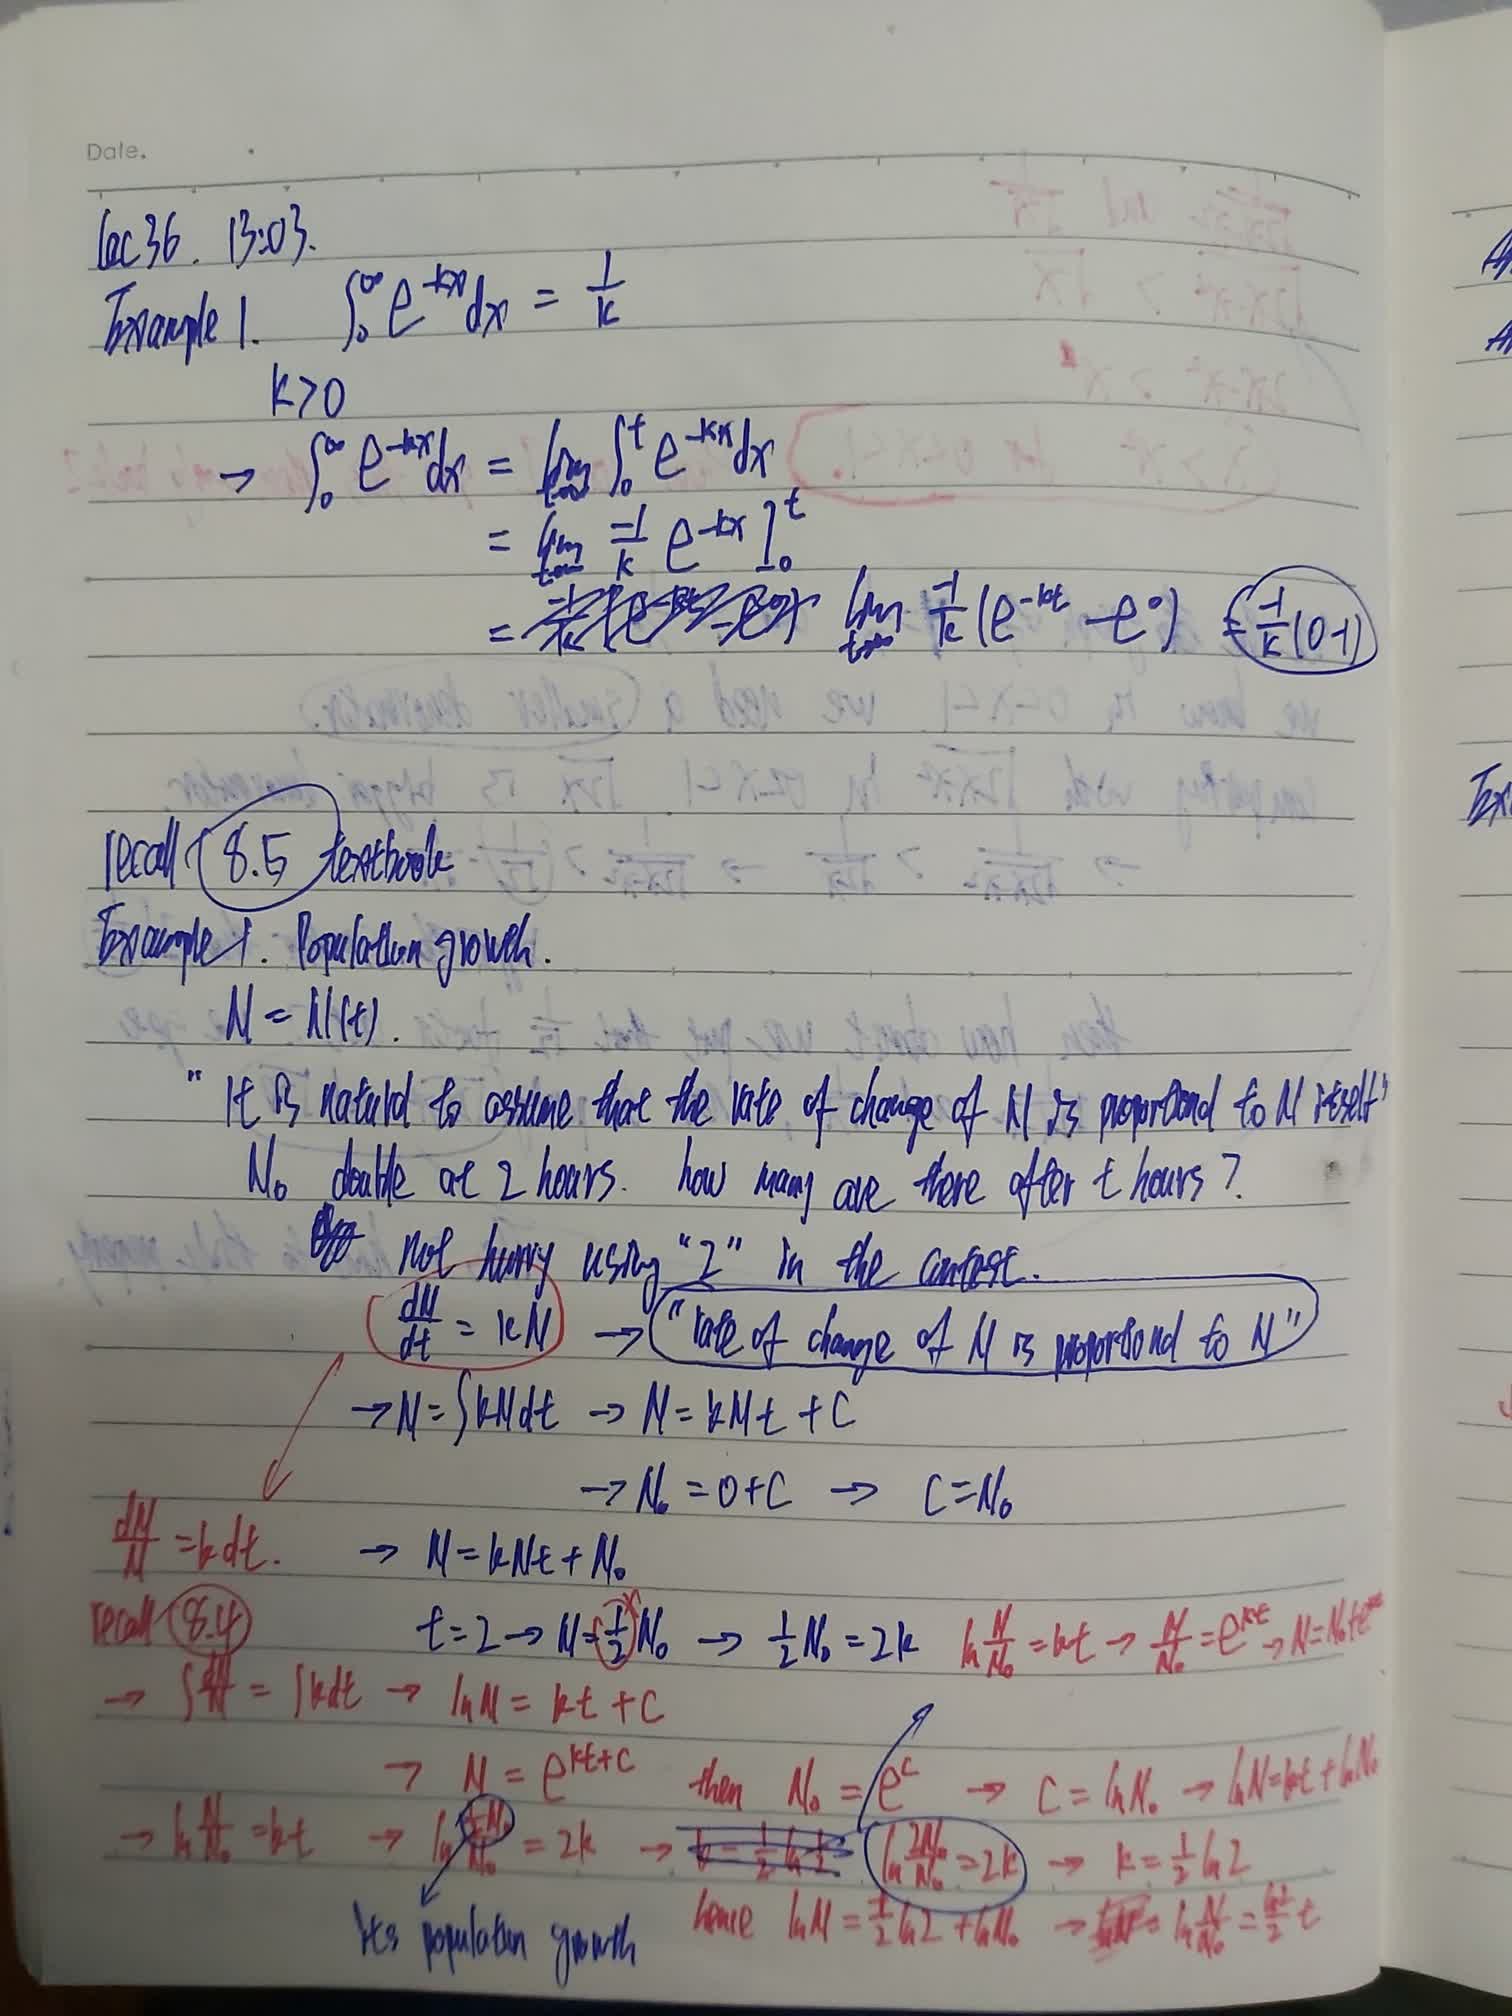 Date.
lec 36. 13:03.
Example 1. ∫₀^∞ e^{-kx} dx = 1/k
k>0
→ ∫₀^∞ e^{-kx} dx = lim_{t→∞} ∫₀^t e^{-kx} dx
= lim_{t→∞} -1/k e^{-kx} ]₀^t
= lim_{t→∞} -1/k (e^{-kt} - e⁰) = -1/k (0-1)
recall 8.5 textbook
Example 1. Population growth.
N = N(t).
"It is natural to assume that the rate of change of N is proportional to N itself"
N₀ double at 2 hours. how many are there after t hours?
not hurry using "2" in the contest.
dN/dt = kN → "rate of change of N is proportional to N"
→ N = ∫kNdt → N = kNt + C
→ N₀ = 0+C → C = N₀
dN/N = kdt. → N = kNt + N₀
recall 8.4 t=2 → N = 1/2 N₀ → 1/2 N₀ = 2k ln N/N₀ = kt → N/N₀ = e^{kt} → N = N₀te^{kt}
→ ∫dN/N = ∫kdt → lnN = kt + C
→ N = e^{kt+C} then N₀ = e^C → C = lnN₀ → lnN = kt + lnN₀
→ ln N/N₀ = kt → ln ½N₀/N₀ = 2k → k = ½ ln ½ ln 2N₀/N₀ = 2k → k = ½ ln2
Its population growth hence lnN = ½ ln2 + lnN₀ → ln N/N₀ = ln2/2 t